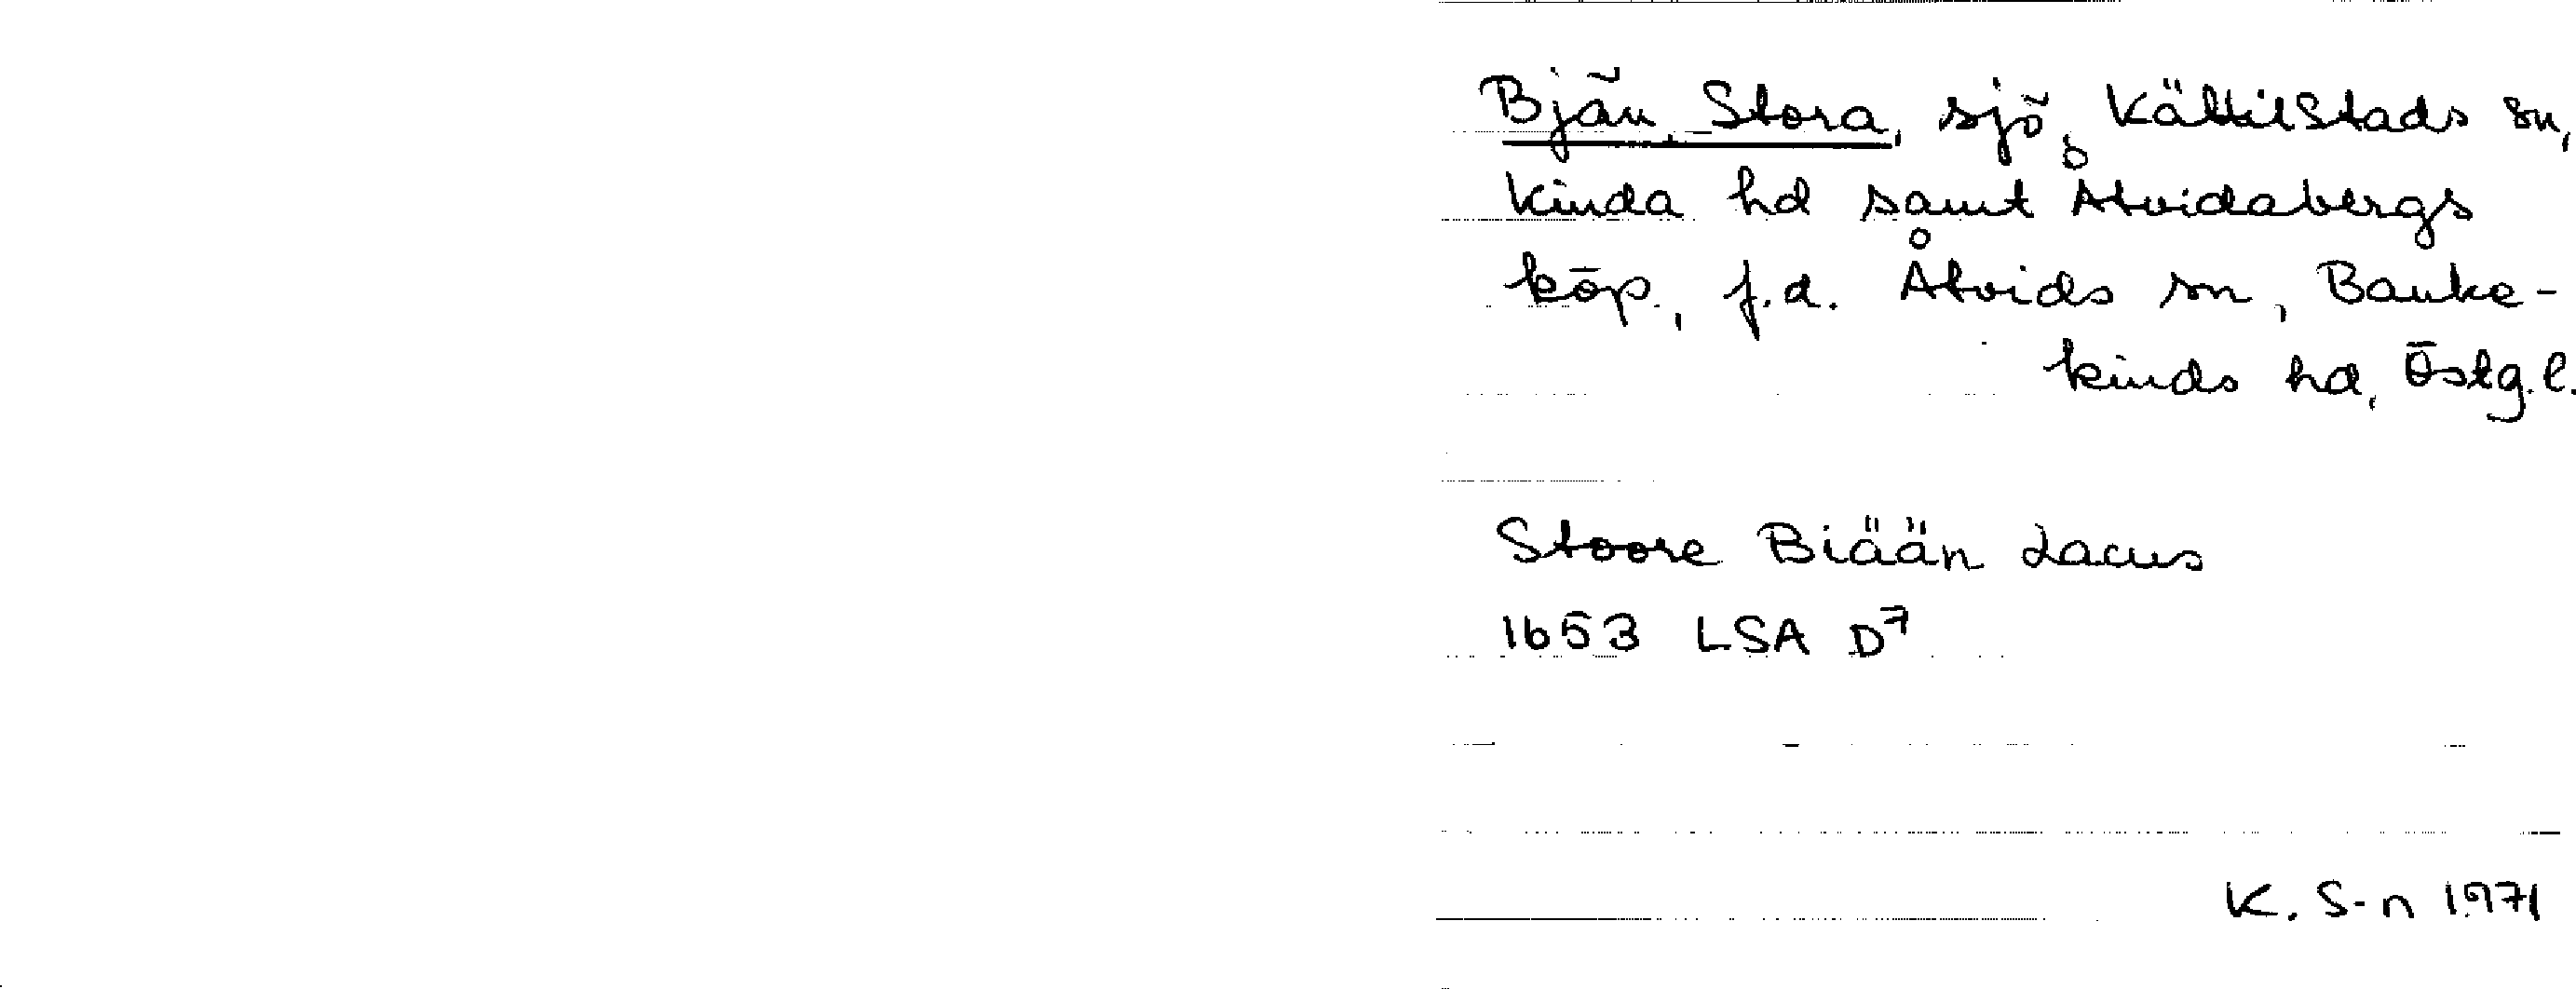 Bjän, Stora, sjö, Kättilstads sn,
Kinda hd samt Åtvidabergs
köp., f.d. Åtvids sn, Banke-
kinds hd, Östg.l.
Stoore Biään Lacus
1653 LSA D7
K. S-n 1971